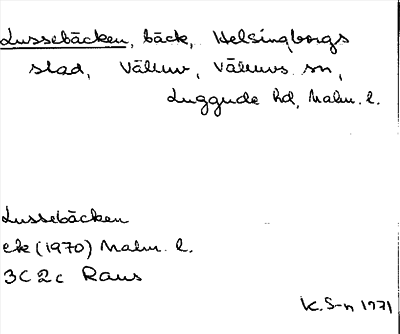 Lussebäcken, bäck, Helsingborgs
stad, Välluv, Välluvs sn,
Luggude hd, Malm. l.
Lussebäcken
ek (1970) Malm. l.
3C 2c Raus
K. S-n 1971